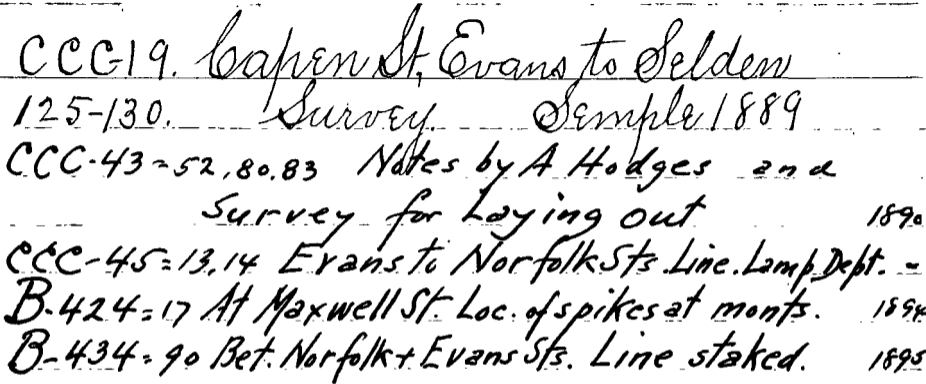 CCC-19. Capen St, Evans to Selden
125-130. Survey. Semple 1889
CCC-43=52,80,83 Notes by A Hodges and
Survey for Laying out 1890
CCC-45=13,14 Evans to Norfolk Sts. Line. Lamp Dept. -
B-424=17 At Maxwell St. Loc. of spikes at monts. 1894
B-434=90 Bet. Norfolk + Evans Sts. Line staked. 1895